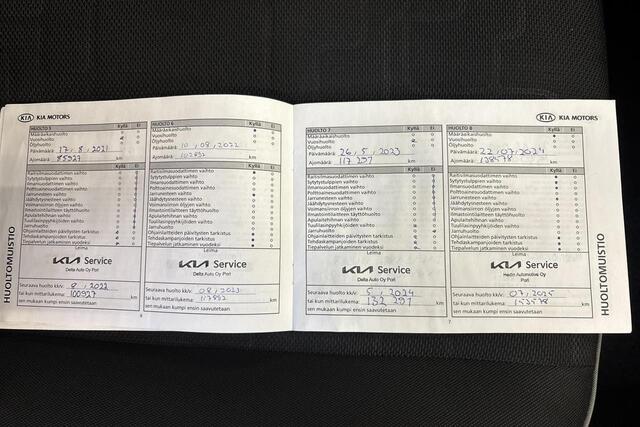 KIA KIA MOTORS
HUOLTOMUISTIO
HUOLTO 5 Kyllä Ei
Määräaikaishuolto
Vuosihuolto
Öljyhuolto
Päivämäärä 17.8.2021
Ajomäärä: 85927 km
Kyllä Ei
Raitisilmasuodattimen vaihto
Sytytystulppien vaihto
Ilmansuodattimen vaihto
Polttoainesuodattimen vaihto
Jarrunesteen vaihto
Jäähdytysnesteen vaihto
Voimansiirron öljyjen vaihto
Ilmastointilaitteen täyttöhuolto
Apulaitehihnan vaihto
Tuulilasinpyyhkijöiden vaihto
Jarruhuolto
Ohjainlaitteiden päivitysten tarkistus
Tehdaskampanjoiden tarkistus
Tiepalvelun jatkaminen vuodeksi
Leima
KIA Service
Delta Auto Oy Pori
Seuraava huolto kk/v: 8, 2022
tai kun mittarilukema: 100927 km
sen mukaan kumpi ensin saavutetaan
HUOLTO 6 Kyllä Ei
Määräaikaishuolto
Vuosihuolto
Öljyhuolto
Päivämäärä 10, 08, 2022
Ajomäärä: 102892 km
Kyllä Ei
Raitisilmasuodattimen vaihto
Sytytystulppien vaihto
Ilmansuodattimen vaihto
Polttoainesuodattimen vaihto
Jarrunesteen vaihto
Jäähdytysnesteen vaihto
Voimansiirron öljyjen vaihto
Ilmastointilaitteen täyttöhuolto
Apulaitehihnan vaihto
Tuulilasinpyyhkijöiden vaihto
Jarruhuolto
Ohjainlaitteiden päivitysten tarkistus
Tehdaskampanjoiden tarkistus
Tiepalvelun jatkaminen vuodeksi
Leima
KIA Service
Delta Auto Oy Pori
Seuraava huolto kk/v: 08, 2023
tai kun mittarilukema: 117892 km
sen mukaan kumpi ensin saavutetaan
6
KIA KIA MOTORS
HUOLTO 7 Kyllä Ei
Määräaikaishuolto
Vuosihuolto
Öljyhuolto
Päivämäärä 26, 5, 2023
Ajomäärä: 117 297 km
Kyllä Ei
Raitisilmasuodattimen vaihto
Sytytystulppien vaihto
Ilmansuodattimen vaihto
Polttoainesuodattimen vaihto
Jarrunesteen vaihto
Jäähdytysnesteen vaihto
Voimansiirron öljyjen vaihto
Ilmastointilaitteen täyttöhuolto
Apulaitehihnan vaihto
Tuulilasinpyyhkijöiden vaihto
Jarruhuolto
Ohjainlaitteiden päivitysten tarkistus
Tehdaskampanjoiden tarkistus
Tiepalvelun jatkaminen vuodeksi
Leima
KIA Service
Delta Auto Oy Pori
Seuraava huolto kk/v: 5, 2024
tai kun mittarilukema: 132 297 km
sen mukaan kumpi ensin saavutetaan
HUOLTO 8 Kyllä Ei
Määräaikaishuolto
Vuosihuolto
Öljyhuolto
Päivämäärä 22.07.2024
Ajomäärä: 138578 km
Kyllä Ei
Raitisilmasuodattimen vaihto
Sytytystulppien vaihto
Ilmansuodattimen vaihto
Polttoainesuodattimen vaihto
Jarrunesteen vaihto
Jäähdytysnesteen vaihto
Voimansiirron öljyjen vaihto
Ilmastointilaitteen täyttöhuolto
Apulaitehihnan vaihto
Tuulilasinpyyhkijöiden vaihto
Jarruhuolto
Ohjainlaitteiden päivitysten tarkistus
Tehdaskampanjoiden tarkistus
Tiepalvelun jatkaminen vuodeksi
Leima
KIA Service
Hedin Automotive Oy
Pori
Seuraava huolto kk/v: 07, 2025
tai kun mittarilukema: 153578 km
sen mukaan kumpi ensin saavutetaan
7
HUOLTOMUISTIO